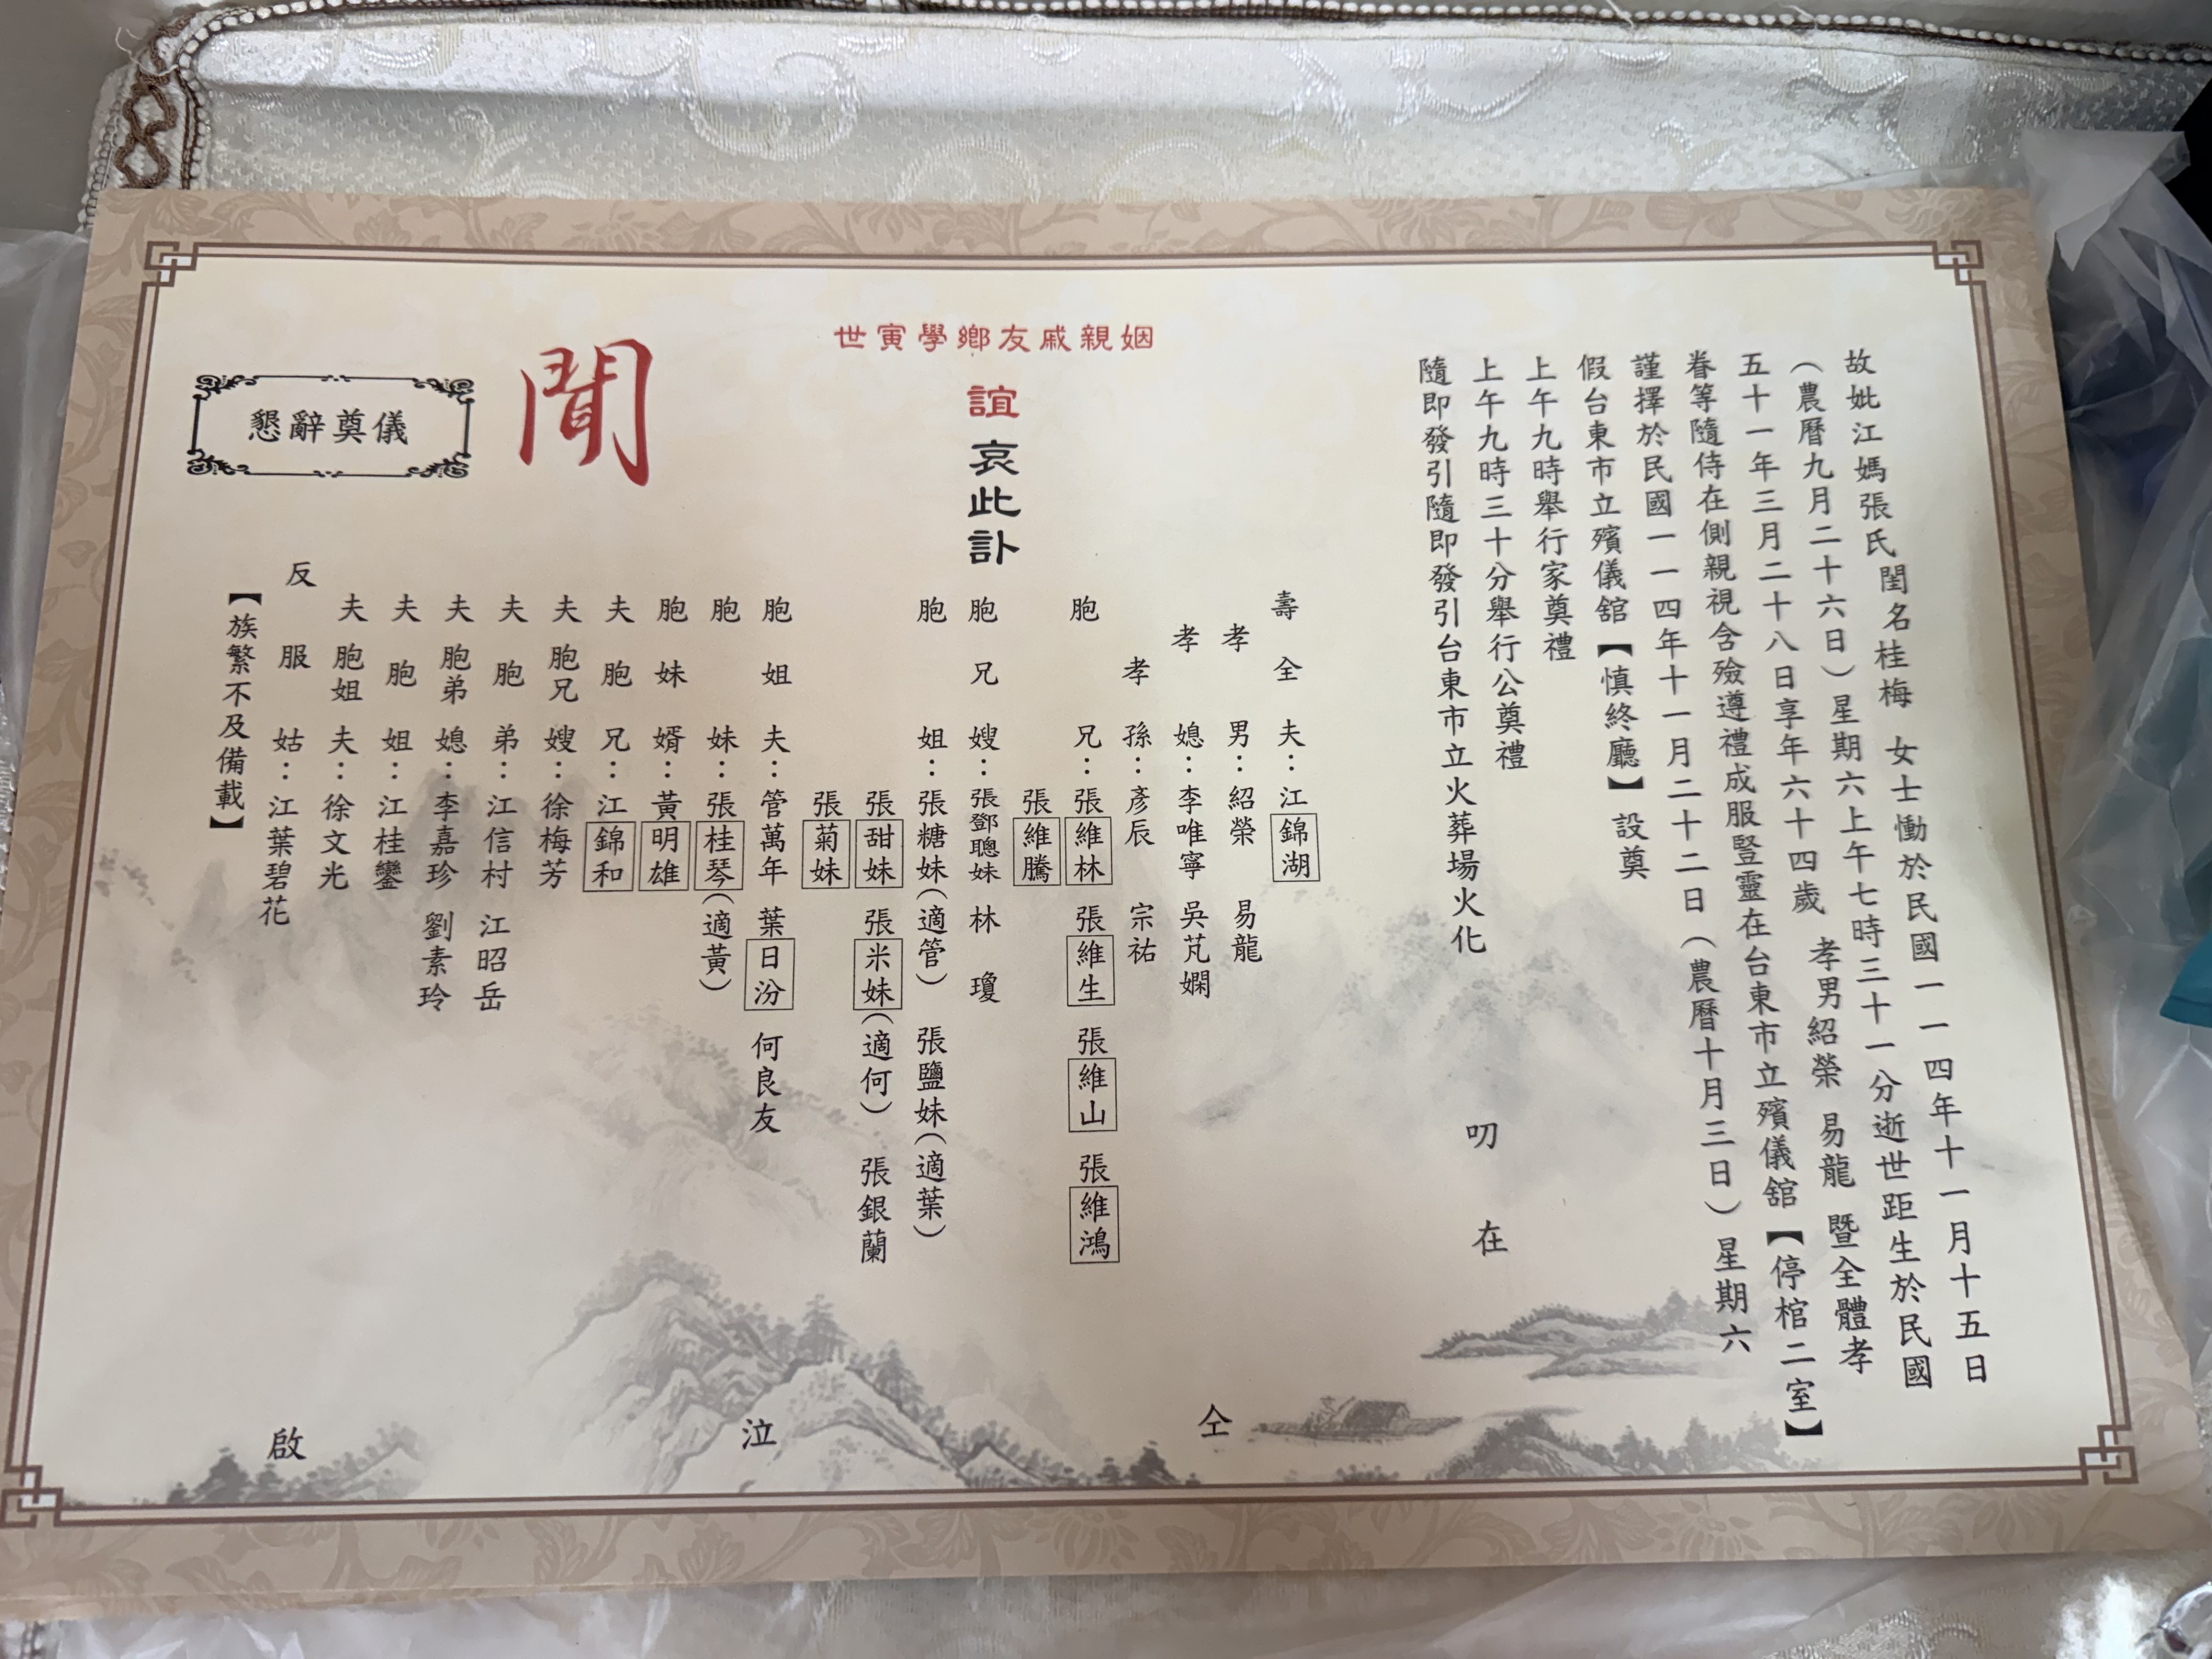 故妣江媽張氏閨名桂梅 女士慟於民國一一四年十一月十五日
(農曆九月二十六日)星期六上午七時三十一分逝世距生於民國
五十一年三月二十八日享年六十四歲 孝男紹榮 易龍 暨全體孝
眷等隨侍在側親視含殮遵禮成服豎靈在台東市立殯儀舘【停棺二室】
謹擇於民國一一四年十一月二十二日(農曆十月三日)星期六
假台東市立殯儀舘【慎終廳】設奠
上午九時舉行家奠禮
上午九時三十分舉行公奠禮
隨即發引隨即發引台東市立火葬場火化
叨在
姻親戚友鄉學寅世
誼哀此訃
聞
懇辭奠儀
壽全夫:江錦湖
孝男:紹榮 易龍
孝媳:李唯寧 吳芃嫻
孝孫:彥辰 宗祐
胞兄:張維林 張維生 張維山 張維鴻
張維騰
胞兄嫂:張鄧聰妹 林瓊
胞姐:張糖妹(適管) 張鹽妹(適葉)
張甜妹 張米妹(適何) 張銀蘭
張菊妹
胞姐夫:管萬年 葉日汾 何良友
胞妹:張桂琴(適黃)
胞妹婿:黃明雄
夫胞兄:江錦和
夫胞兄嫂:徐梅芳
夫胞弟:江信村 江昭岳
夫胞弟媳:李嘉珍 劉素玲
夫胞姐:江桂鑾
夫胞姐夫:徐文光
反服姑:江葉碧花
【族繁不及備載】
仝泣啟